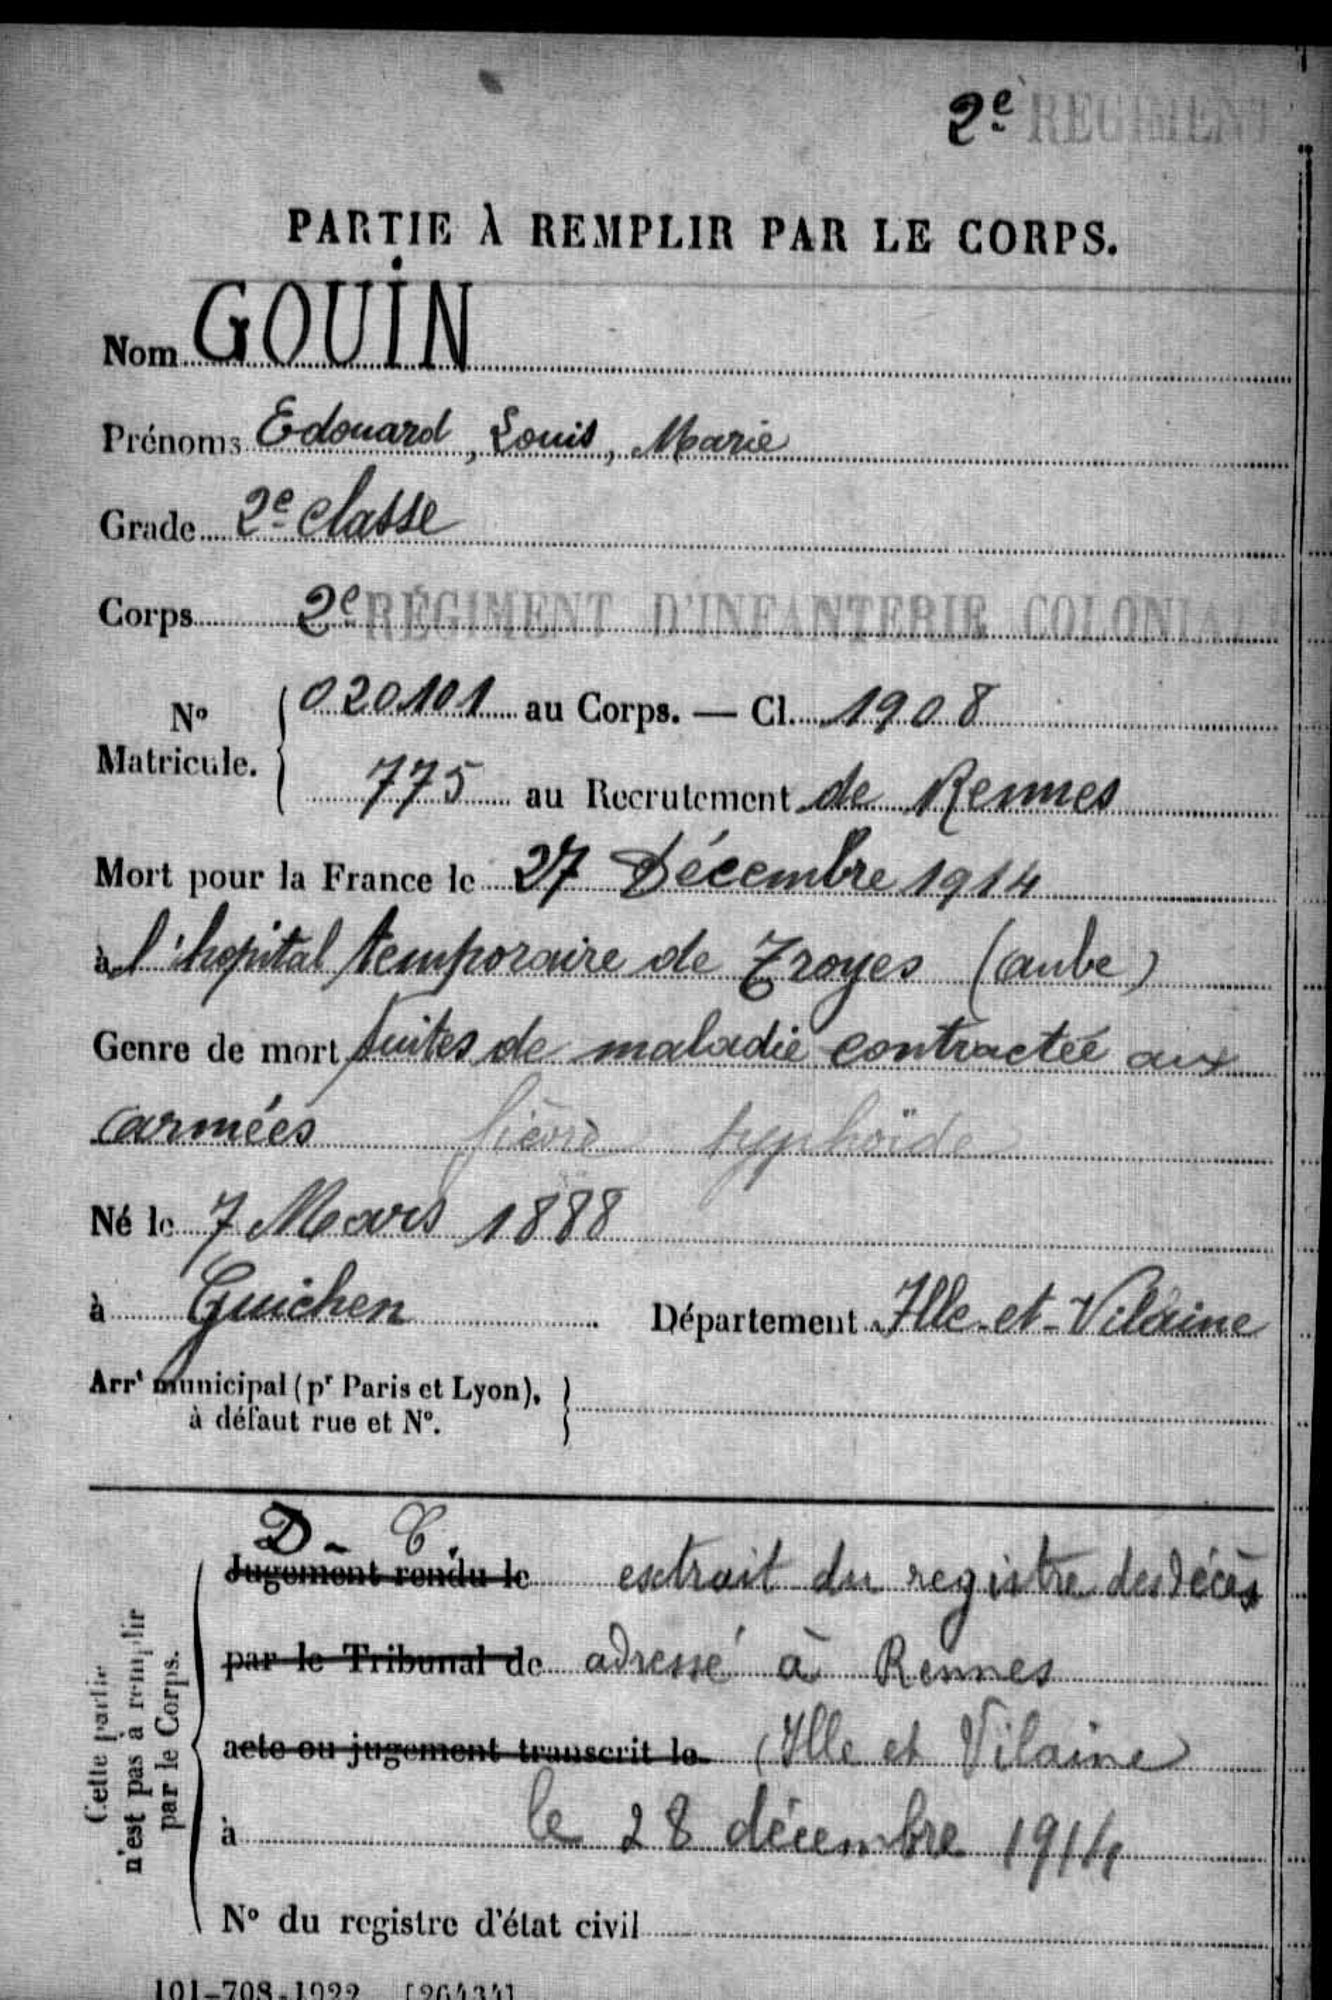 2e REGIMENT
PARTIE À REMPLIR PAR LE CORPS.
Nom GOUIN
Prénoms Edouard, Louis, Marie
Grade 2e classe
Corps 2e RÉGIMENT D'INFANTERIE COLONIA
No Matricule. 020101 au Corps. — Cl. 1908
775 au Recrutement de Rennes
Mort pour la France le 27 Décembre 1914
à l'hopital temporaire de Troyes (aube)
Genre de mort suites de maladie contractée aux
armées fièvre typhoïde
Né le 7 Mars 1888
à Guichen Département Ille-et-Vilaine
Arrt municipal (pr Paris et Lyon),
à défaut rue et No.
D- C.
Jugement rendu le extrait du registre des décès
par le Tribunal de adressé à Rennes
acte ou jugement transcrit le (Ille et Vilaine
à le 28 décembre 1914
No du registre d'état civil
Cette partie
n'est pas à remplir
par le Corps.
101-708-1922 [26434]